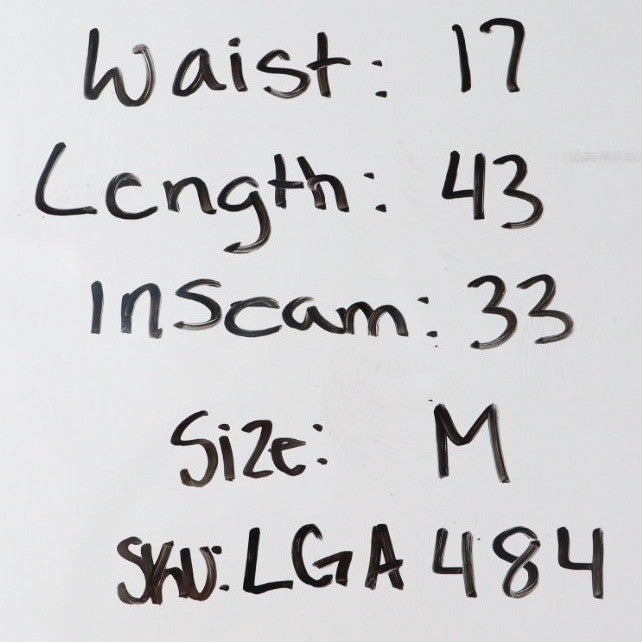 Waist: 17
Length: 43
Inseam: 33
Size: M
SKU: LGA484